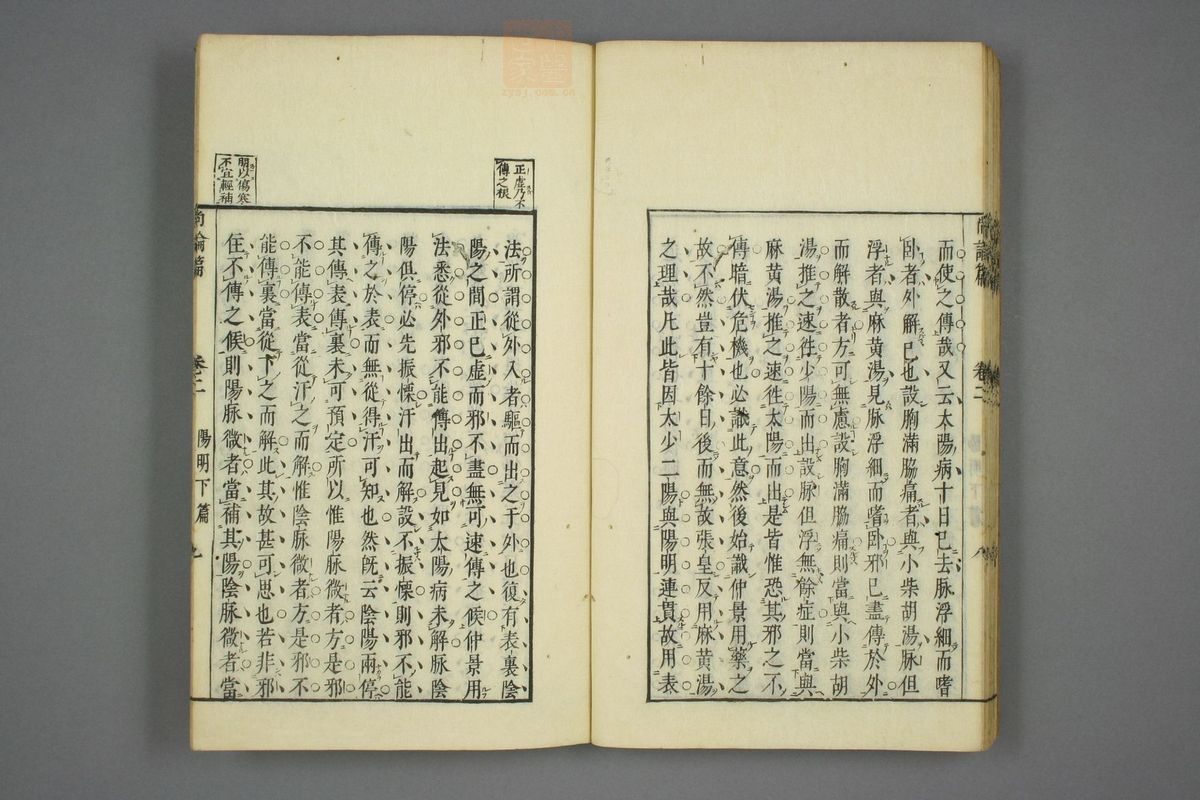 而使之傳哉又云太陽病十日已去脉浮細而嗜
卧者外解已也設胸滿脇痛者與小柴胡湯脉但
浮者與麻黃湯見脉浮細而嗜卧邪已盡傳於外
而解散者方可無慮設胸滿脇痛則當與小柴胡
湯推之速徃少陽而出設脉但浮無餘症則當與
麻黃湯推之速徃太陽而出是皆惟恐其邪之不
傳暗伏危機也必識此意然後始識仲景用藥之
故不然豈有十餘日後而無故張皇反用麻黃湯
之理哉凡此皆因太少二陽與陽明連貫故用表
尚論篇 卷二 八
正虛乃不
傳之根
法所謂從外入者驅而出之于外也復有表裏陰
陽之間正已虛而邪不盡無可速傳之候仲景用
法悉從外邪不能傳出起見如太陽病未解脉陰
陽俱停必先振慄汗出而解設不振慄則邪不能
傳之於表而無從得汗可知也然旣云陰陽兩停
其傳表傳裏未可預定所以惟陽脉微者方是邪
不能傳表當從汗之而解惟陰脉微者方是邪不
能傳裏當從下之而解此其故甚可思也若非邪
住不傳之候則陽脉微者當補其陽陰脉微者當
明以傷寒
不宜輕補
尚論篇 卷二 陽明下篇 九